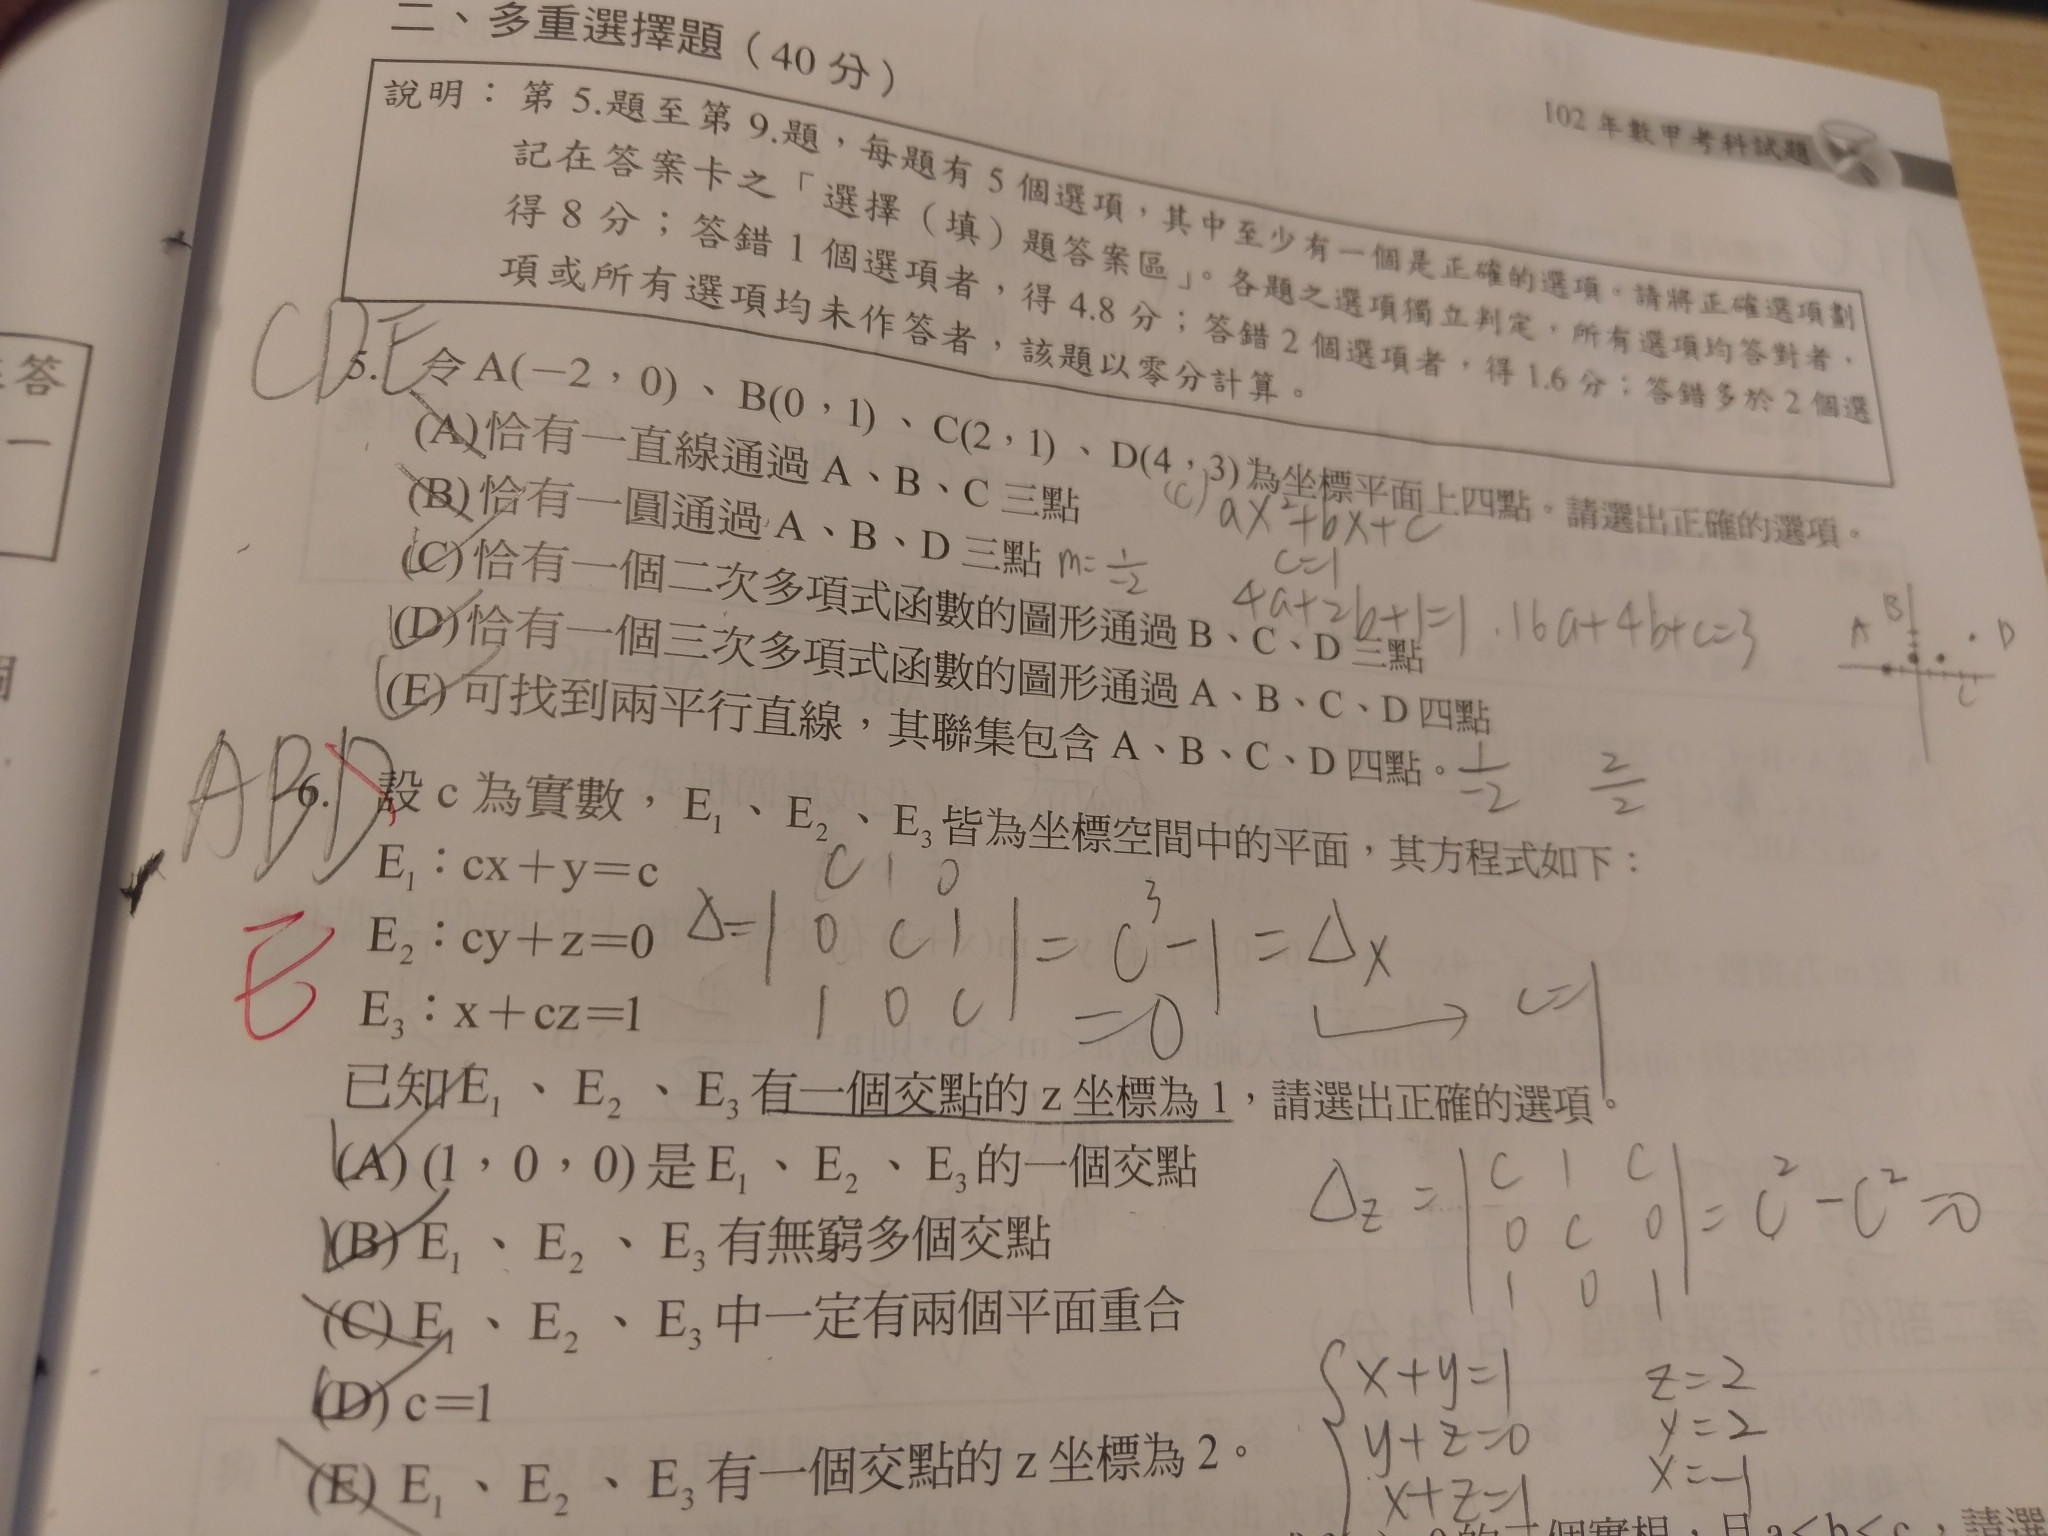 二、多重選擇題（40 分）
102 年數甲考科試題
說明：第 5.題至第 9.題，每題有 5 個選項，其中至少有一個是正確的選項。請將正確選項劃
記在答案卡之「選擇（填）題答案區」。各題之選項獨立判定，所有選項均答對者，
得 8 分；答錯 1 個選項者，得 4.8 分；答錯 2 個選項者，得 1.6 分；答錯多於 2 個選
項或所有選項均未作答者，該題以零分計算。
CDE
5. 令 A(−2，0)、B(0，1)、C(2，1)、D(4，3)為坐標平面上四點。請選出正確的選項。
(A) 恰有一直線通過 A、B、C 三點
(B) 恰有一圓通過 A、B、D 三點
(C) 恰有一個二次多項式函數的圖形通過 B、C、D 三點
(D) 恰有一個三次多項式函數的圖形通過 A、B、C、D 四點
(E) 可找到兩平行直線，其聯集包含 A、B、C、D 四點。
(C) ax²+bx+c
c=1
4a+2b+1=1 . 16a+4b+c=3
m= 1/-2
A B D C
1/-2 2/2
ABD
E
6. 設 c 為實數，E₁、E₂、E₃皆為坐標空間中的平面，其方程式如下：
E₁：cx+y=c
E₂：cy+z=0
E₃：x+cz=1
Δ= | c 1 0
0 c 1
1 0 c | = c³-1 = Δx
=0 c=1
已知 E₁、E₂、E₃有一個交點的 z 坐標為 1，請選出正確的選項。
(A) (1，0，0)是 E₁、E₂、E₃的一個交點
(B) E₁、E₂、E₃有無窮多個交點
(C) E₁、E₂、E₃中一定有兩個平面重合
(D) c=1
(E) E₁、E₂、E₃有一個交點的 z 坐標為 2。
Δz = | c 1 c
0 c 0
1 0 1 | = c²-c²=0
x+y=1 z=2
y+z=0 y=2
x+z=1 x=-1
個實根，且 a<b<c，請選